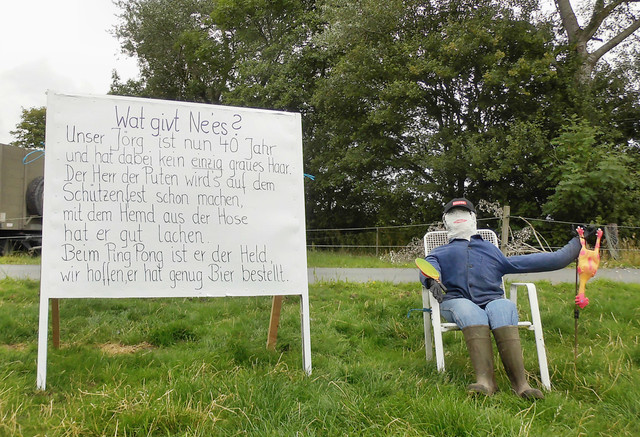 Wat givt Ne'es?
Unser Jörg ist nun 40 Jahr
und hat dabei kein einzig graues Haar.
Der Herr der Puten wird's auf dem
Schützenfest schon machen,
mit dem Hemd aus der Hose
hat er gut lachen.
Beim Ping Pong ist er der Held,
wir hoffen, er hat genug Bier bestellt.